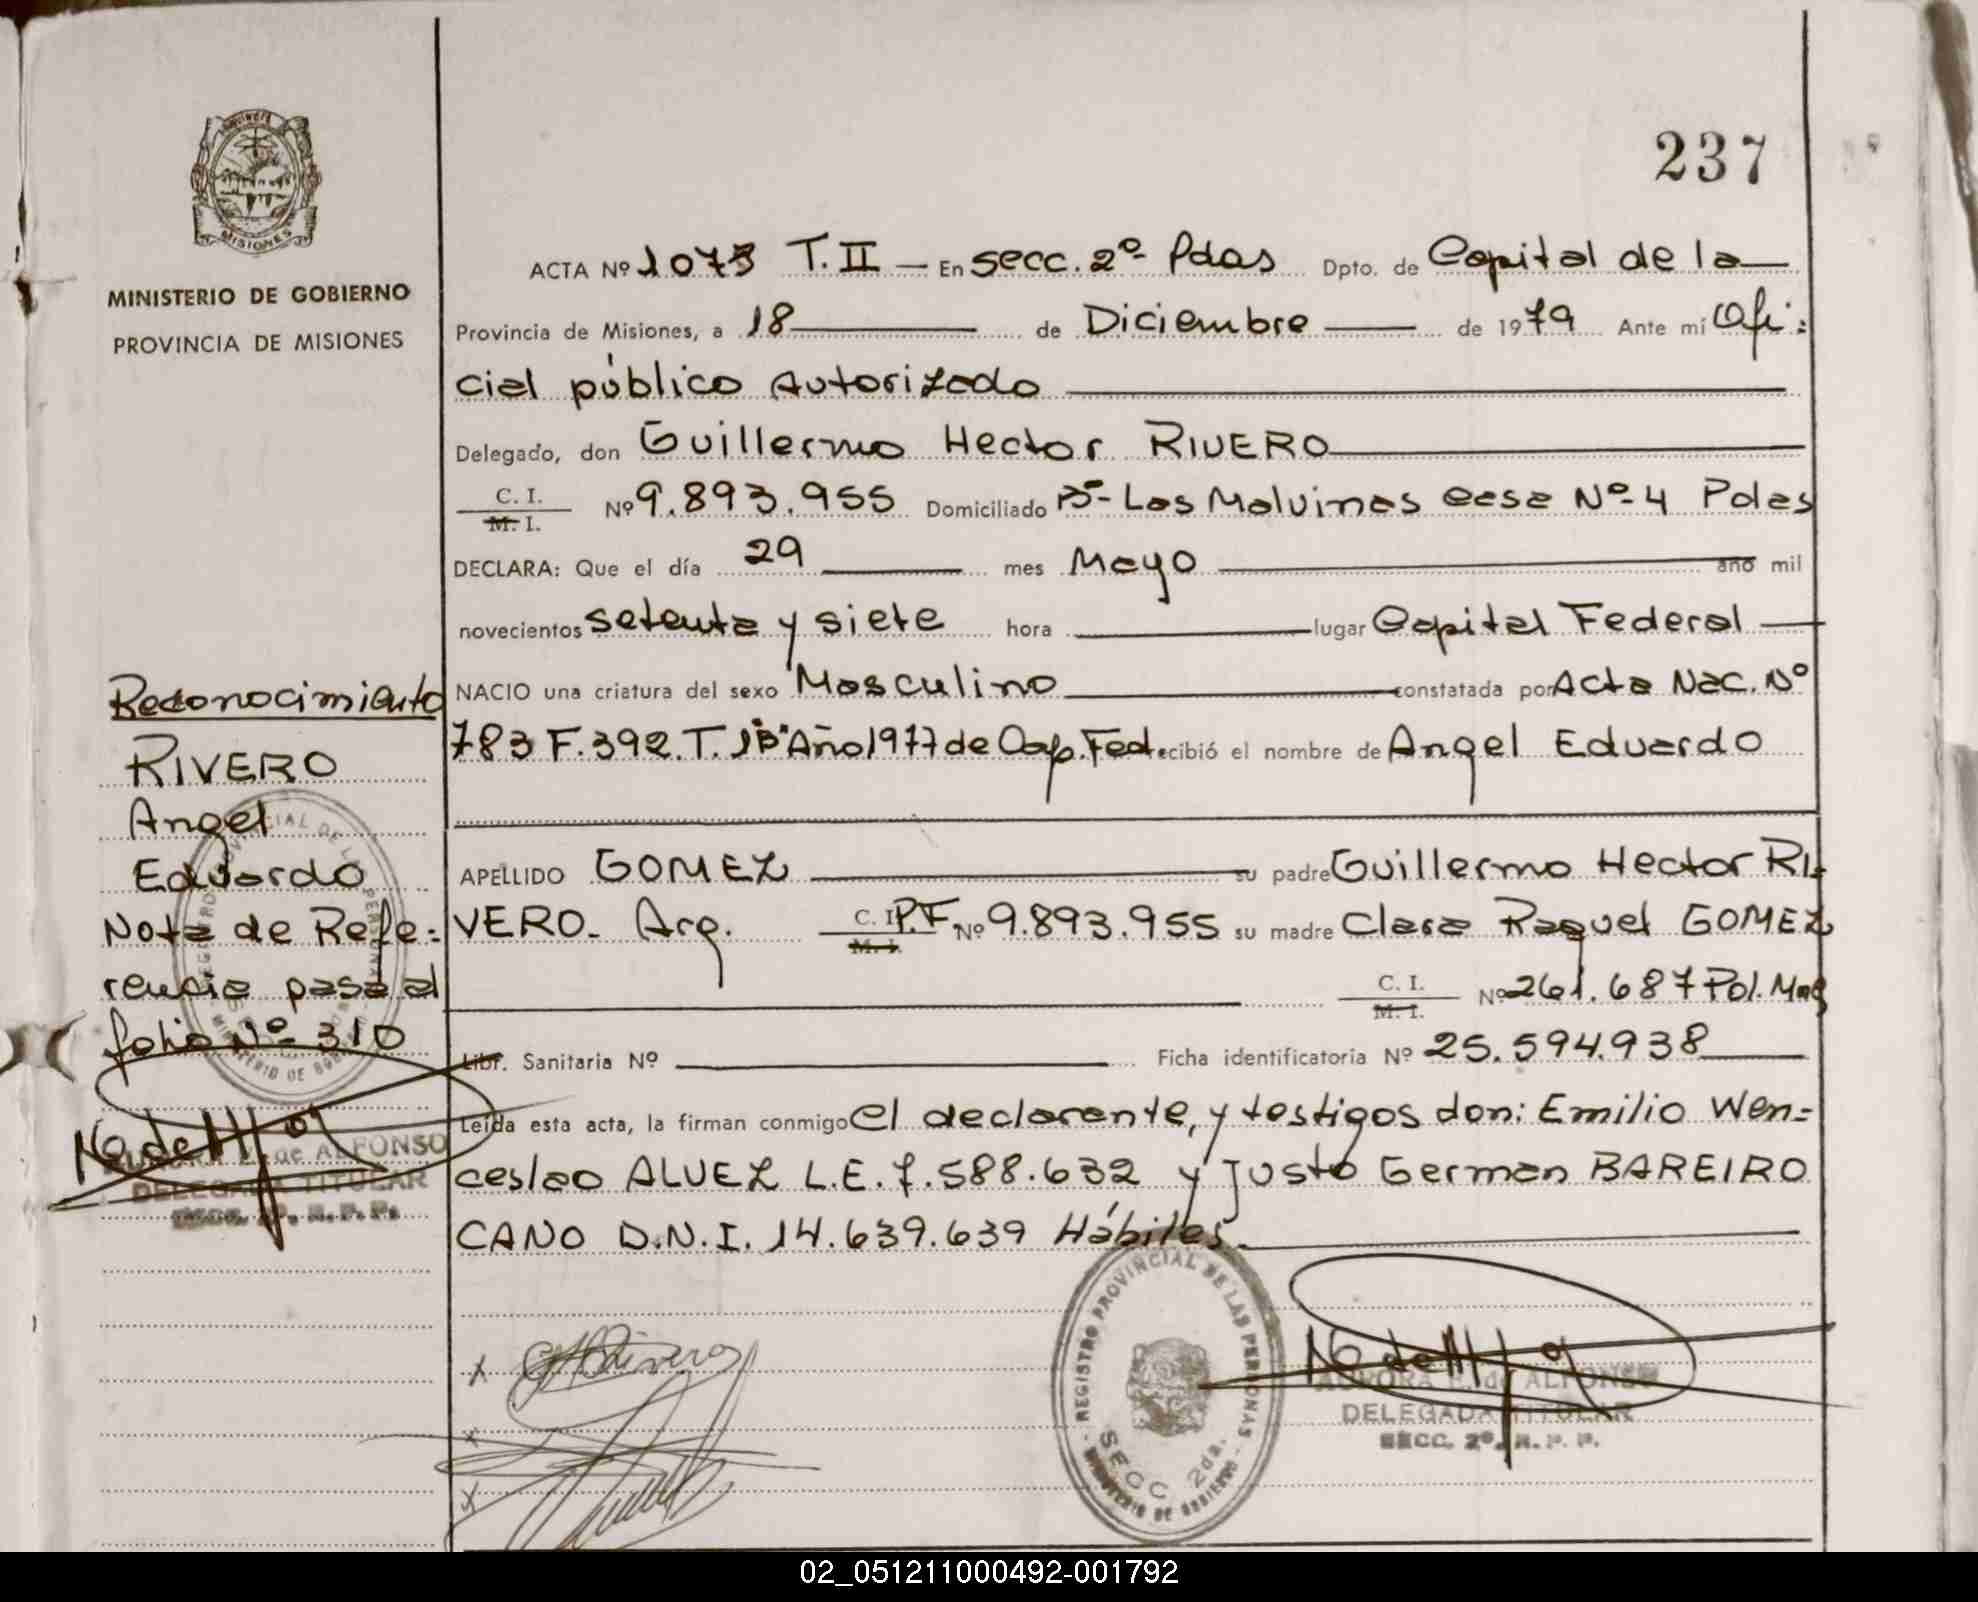 237
MISIONES
MINISTERIO DE GOBIERNO
PROVINCIA DE MISIONES
ACTA Nº 1073 T. II — En secc. 2º Pdas Dpto. de Capital de la
Provincia de Misiones, a 18 de Diciembre de 1979 Ante mí Ofi=
cial público Autorizado
Delegado, don Guillermo Hector RIVERO
C. I.
M. I. Nº 9.893.955 Domiciliado Bº- Las Malvinas casa Nº-4 Pdas
DECLARA: Que el día 29 mes Mayo año mil
novecientos setenta y siete hora lugar Capital Federal
NACIO una criatura del sexo Masculino constatada por Acta Nac. Nº
783 F. 392. T. 1º"B" Año 1977 de Cap. Fed. recibió el nombre de Angel Eduardo
APELLIDO GOMEZ su padre Guillermo Hector RI-
VERO- Arg. C. I. P.F Nº 9.893.955 su madre Clara Raquel GOMEZ
M. I.
C. I.
M. I. Nº 261.687 Pol. Mns
Libr. Sanitaria Nº Ficha identificatoria Nº 25.594.938
Leída esta acta, la firman conmigo el declarante, y testigos don: Emilio Wen=
ceslao ALVEZ L.E. 7.588.632 y Justo German BAREIRO
CANO D.N.I. 14.639.639 Hábiles.
Reconocimiento
RIVERO
Angel
Eduardo
Nota de Refe=
rencia pasa al
folio Nº- 310
AURORA de ALFONSO
DELEGADA TITULAR
SECC. 2º. R. P. P.
REGISTRO PROVINCIAL DE LAS PERSONAS
SECC 2da.
MINISTERIO DE GOBIERNO
AURORA de ALFONSO
DELEGADA TITULAR
SECC. 2º. R. P. P.
02_051211000492-001792